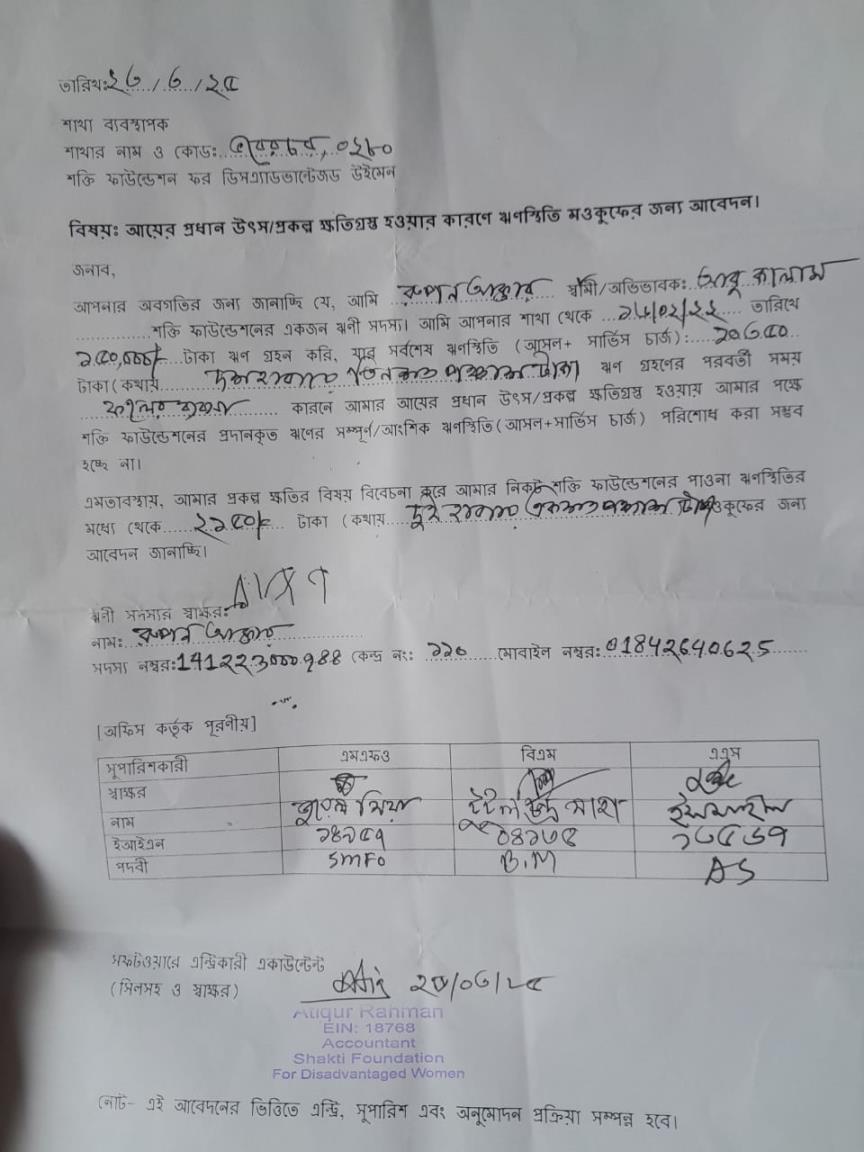 তারিখঃ ২৩/৩/২৫
শাখা ব্যবস্থাপক
শাখার নাম ও কোড: ০২৮০
শক্তি ফাউন্ডেশন ফর ডিসএ্যাডভান্টেজড উইমেন
বিষয়ঃ আয়ের প্রধান উৎস/প্রকল্প ক্ষতিগ্রস্থ হওয়ার কারণে ঋণস্থিতি মওকুফের জন্য আবেদন।
জনাব,
আপনার অবগতির জন্য জানাচ্ছি যে, আমি রুপন আক্তার স্বামী/অভিভাবক: আবু কালাম
শক্তি ফাউন্ডেশনের একজন ঋণী সদস্য। আমি আপনার শাখা থেকে ১৮/০২/২২ তারিখে
টাকা ঋণ গ্রহন করি, যার সর্বশেষ ঋণস্থিতি (আসল+ সার্ভিস চার্জ): ১০৩৫০
টাকা(কথায় দশ হাজার তিনশত পঞ্চাশ টাকা ঋণ গ্রহণের পরবর্তী সময়
কারনে আমার আয়ের প্রধান উৎস/প্রকল্প ক্ষতিগ্রস্থ হওয়ায় আমার পক্ষে
শক্তি ফাউন্ডেশনের প্রদানকৃত ঋণের সম্পূর্ণ/আংশিক ঋণস্থিতি(আসল+সার্ভিস চার্জ) পরিশোধ করা সম্ভব
হচ্ছে না।
এমতাবস্থায়, আমার প্রকল্প ক্ষতির বিষয় বিবেচনা করে আমার নিকট শক্তি ফাউন্ডেশনের পাওনা ঋণস্থিতির
মধ্যে থেকে ২১৫০/- টাকা (কথায় দুই হাজার একশত পঞ্চাশ টাকা মওকুফের জন্য
আবেদন জানাচ্ছি।
ঋনী সদস্যর স্বাক্ষর:
নাম: রুপন আক্তার
সদস্য নম্বর: 141223000988 কেন্দ্র নং: ১১০ মোবাইল নম্বর: 01842640625
[অফিস কর্তৃক পূরণীয়]
সুপারিশকারী এমএফও বিএম এএস
স্বাক্ষর
নাম জুয়েল মিয়া সাহা ইসমাইল
ইআইএন ১৪৭৫৭
পদবী SMFO B.M AS
সফটওয়ারে এন্ট্রিকারী একাউন্টেন্ট
(সিলসহ ও স্বাক্ষর) ২৩/০৩/২৫
Atiqur Rahman
EIN: 18768
Accountant
Shakti Foundation
For Disadvantaged Women
নোট- এই আবেদনের ভিত্তিতে এন্ট্রি, সুপারিশ এবং অনুমোদন প্রক্রিয়া সম্পন্ন হবে।